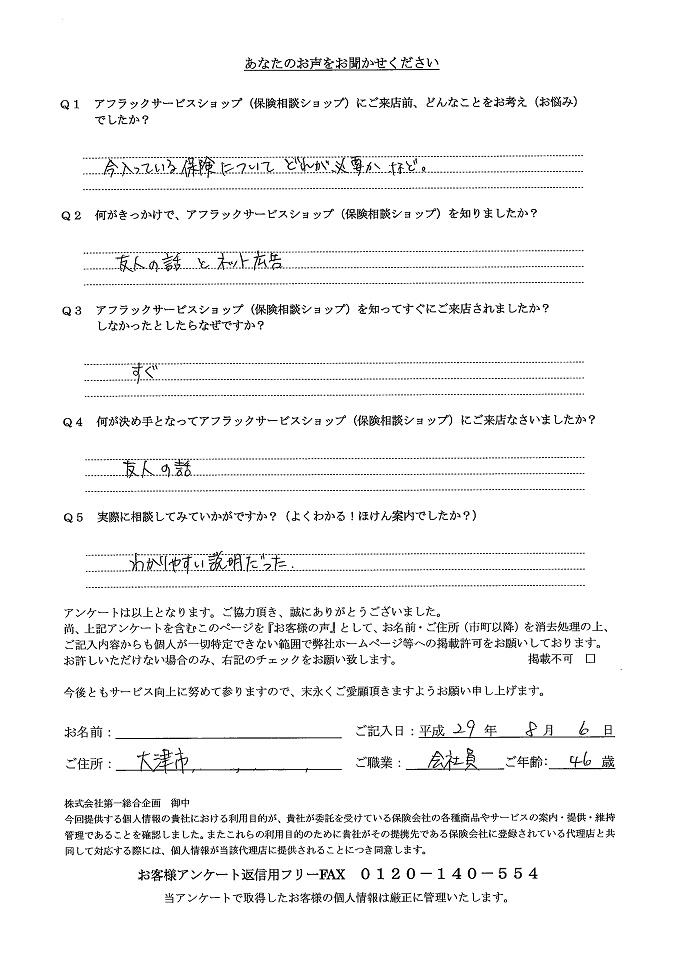 あなたのお声をお聞かせください
Q1 アフラックサービスショップ（保険相談ショップ）にご来店前、どんなことをお考え（お悩み）
でしたか？
今入っている保険について どれが必要か など。
Q2 何がきっかけで、アフラックサービスショップ（保険相談ショップ）を知りましたか？
友人の話 と ネット広告
Q3 アフラックサービスショップ（保険相談ショップ）を知ってすぐにご来店されましたか？
しなかったとしたらなぜですか？
すぐ
Q4 何が決め手となってアフラックサービスショップ（保険相談ショップ）にご来店なさいましたか？
友人の話
Q5 実際に相談してみていかがですか？（よくわかる！ほけん案内でしたか？）
わかりやすい説明だった.
アンケートは以上となります。ご協力頂き、誠にありがとうございました。
尚、上記アンケートを含むこのページを『お客様の声』として、お名前・ご住所（市町以降）を消去処理の上、
ご記入内容からも個人が一切特定できない範囲で弊社ホームページ等への掲載許可をお願いしております。
お許しいただけない場合のみ、右記のチェックをお願い致します。 掲載不可 □
今後ともサービス向上に努めて参りますので、末永くご愛顧頂きますようお願い申し上げます。
お名前： ご記入日：平成 29 年 8 月 6 日
ご住所： 大津市 ご職業： 会社員 ご年齢： 46 歳
株式会社第一総合企画 御中
今回提供する個人情報の貴社における利用目的が、貴社が委託を受けている保険会社の各種商品やサービスの案内・提供・維持
管理であることを確認しました。またこれらの利用目的のために貴社がその提携先である保険会社に登録されている代理店と共
同して対応する際には、個人情報が当該代理店に提供されることにつき同意します。
お客様アンケート返信用フリーFAX 0120－140－554
当アンケートで取得したお客様の個人情報は厳正に管理いたします。